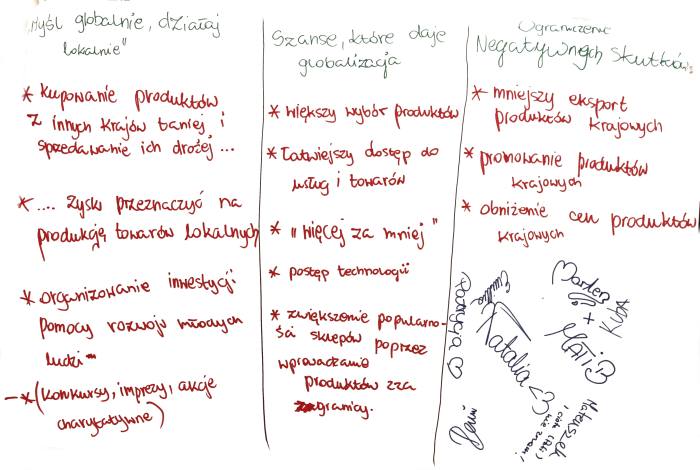 "Myśl globalnie, działaj
lokalnie"
* kupowanie produktów
z innych krajów taniej i
sprzedawanie ich drożej ...
* .... zyski przeznaczyć na
produkcję towarów lokalnych
* organizowanie inwestycji
pomocy rozwoju młodych
ludzi -
- * (konkursy, imprezy, akcje
charytatywne)
Szanse, które daje
globalizacja
* większy wybór produktów
* łatwiejszy dostęp do
usług i towarów
* "więcej za mniej"
* postęp technologii
* zwiększenie popularno-
ści sklepów poprzez
wprowadzanie
produktów zza
granicy.
Ograniczenie
Negatywnych skutków
* mniejszy eksport
produktów krajowych
* promowanie produktów
krajowych
* obniżenie cen produktów
krajowych
Patrycja
Emilka
Natalia <3
+
MATi
Mateuszek